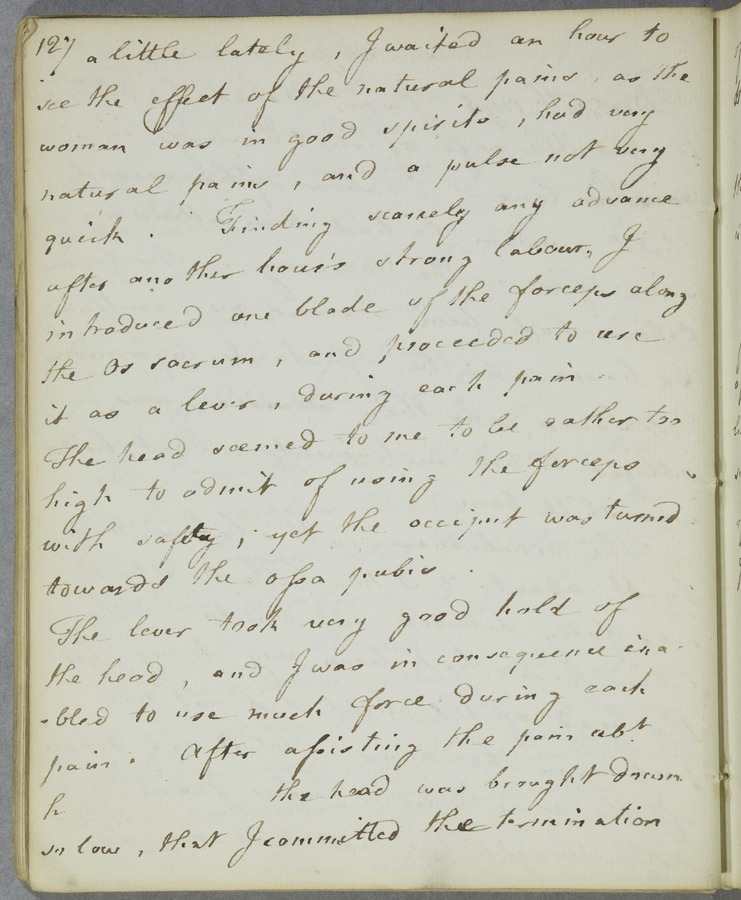 127 a little lately, I waited an hour to
see the effect of the natural pains, as the
woman was in good spirits, had very
natural pains, and a pulse not very
quick. Finding scarcely any advance
after another hour's strong labour, I
introduced one blade of the forceps along
the Os sacrum, and proceeded to use
it as a lever, during each pain.
The head seemed to me to be rather too
high to admit of using the forceps
with safety; yet the occiput was turned
towards the ossa pubis.
The lever took very good hold of
the head, and I was in consequence ena-
-bled to use much force during each
pain. After assisting the pain abt
h the head was brought down
so low, that I committed the termination